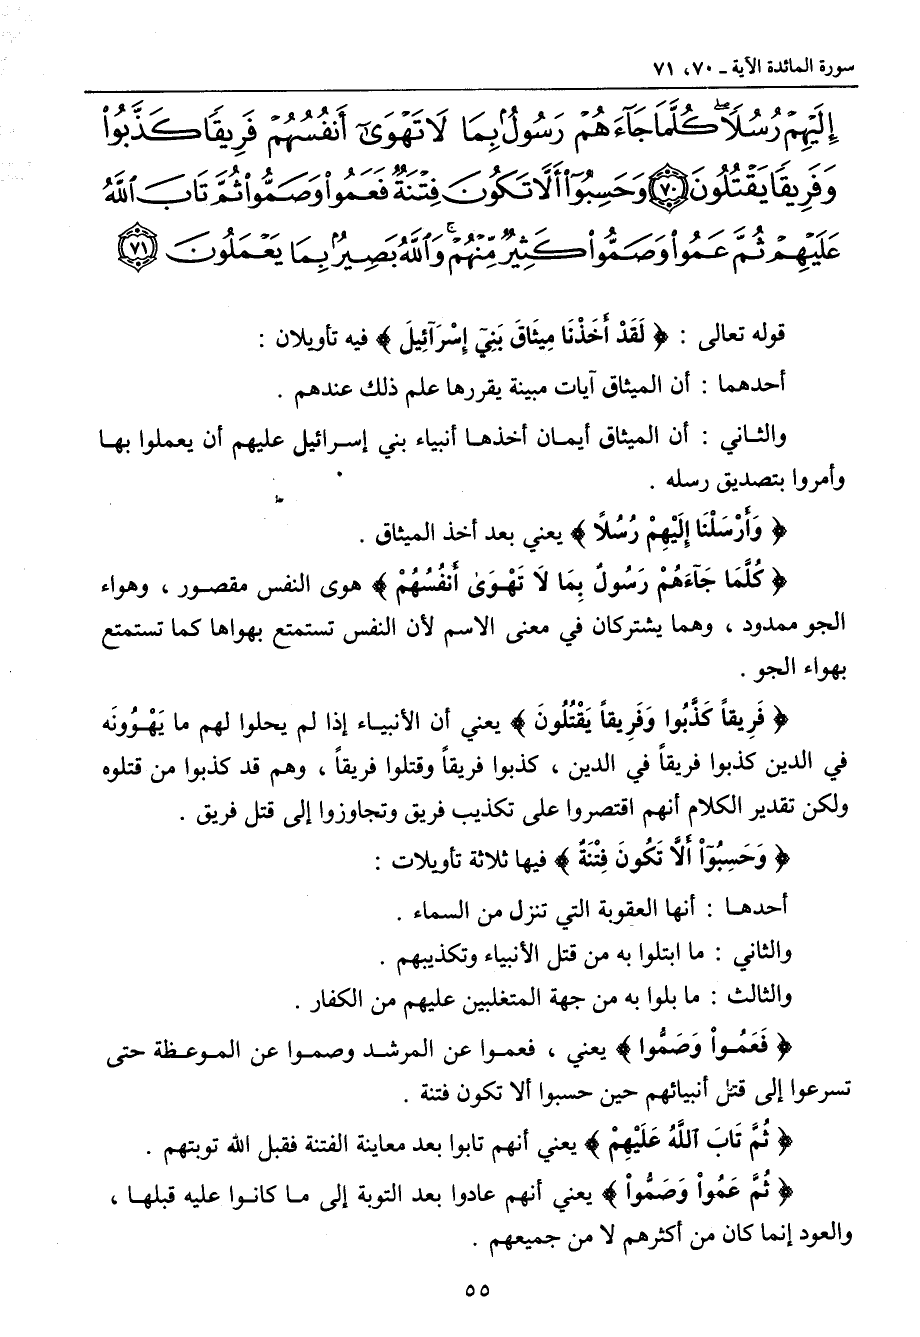 سورة المائدة الآية ـ ٧٠، ٧١
إِلَيْهِمْ رُسُلًا ۖ كُلَّمَا جَآءَهُمْ رَسُولٌۢ بِمَا لَا تَهْوَىٰٓ أَنفُسُهُمْ فَرِيقًا كَذَّبُوا۟
وَفَرِيقًا يَقْتُلُونَ ٧٠ وَحَسِبُوٓا۟ أَلَّا تَكُونَ فِتْنَةٌ فَعَمُوا۟ وَصَمُّوا۟ ثُمَّ تَابَ ٱللَّهُ
عَلَيْهِمْ ثُمَّ عَمُوا۟ وَصَمُّوا۟ كَثِيرٌ مِّنْهُمْ ۚ وَٱللَّهُ بَصِيرٌۢ بِمَا يَعْمَلُونَ ٧١
قوله تعالى : ﴿ لَقَدْ أَخَذْنَا مِيثَاقَ بَنِيٓ إِسْرَآئِيلَ ﴾ فيه تأويلان :
أحدهما : أن الميثاق آيات مبينة يقررها علم ذلك عندهم .
والثاني : أن الميثاق أيمان أخذها أنبياء بني إسرائيل عليهم أن يعملوا بها
وأمروا بتصديق رسله .
﴿ وَأَرْسَلْنَا إِلَيْهِمْ رُسُلًا ﴾ يعني بعد أخذ الميثاق .
﴿ كُلَّمَا جَآءَهُمْ رَسُولٌ بِمَا لَا تَهْوَىٰ أَنْفُسُهُمْ ﴾ هوى النفس مقصور ، وهواء
الجو ممدود ، وهما يشتركان في معنى الاسم لأن النفس تستمتع بهواها كما تستمتع
بهواء الجو .
﴿ فَرِيقاً كَذَّبُوا وَفَرِيقاً يَقْتُلُونَ ﴾ يعني أن الأنبياء إذا لم يحلوا لهم ما يَهْوُونَه
في الدين كذبوا فريقاً في الدين ، كذبوا فريقاً وقتلوا فريقاً ، وهم قد كذبوا من قتلوه
ولكن تقدير الكلام أنهم اقتصروا على تكذيب فريق وتجاوزوا إلى قتل فريق .
﴿ وَحَسِبُوٓاْ أَلَّا تَكُونَ فِتْنَةٌ ﴾ فيها ثلاثة تأويلات :
أحدها : أنها العقوبة التي تنزل من السماء .
والثاني : ما ابتلوا به من قتل الأنبياء وتكذيبهم .
والثالث : ما بلوا به من جهة المتغلبين عليهم من الكفار .
﴿ فَعَمُواْ وَصَمُّوا ﴾ يعني ، فعموا عن المرشد وصموا عن الموعظة حتى
تسرعوا إلى قتل أنبيائهم حين حسبوا ألا تكون فتنة .
﴿ ثُمَّ تَابَ ٱللَّهُ عَلَيْهِمْ ﴾ يعني أنهم تابوا بعد معاينة الفتنة فقبل الله توبتهم .
﴿ ثُمَّ عَمُواْ وَصَمُّواْ ﴾ يعني أنهم عادوا بعد التوبة إلى ما كانوا عليه قبلها ،
والعود إنما كان من أكثرهم لا من جميعهم .
٥٥